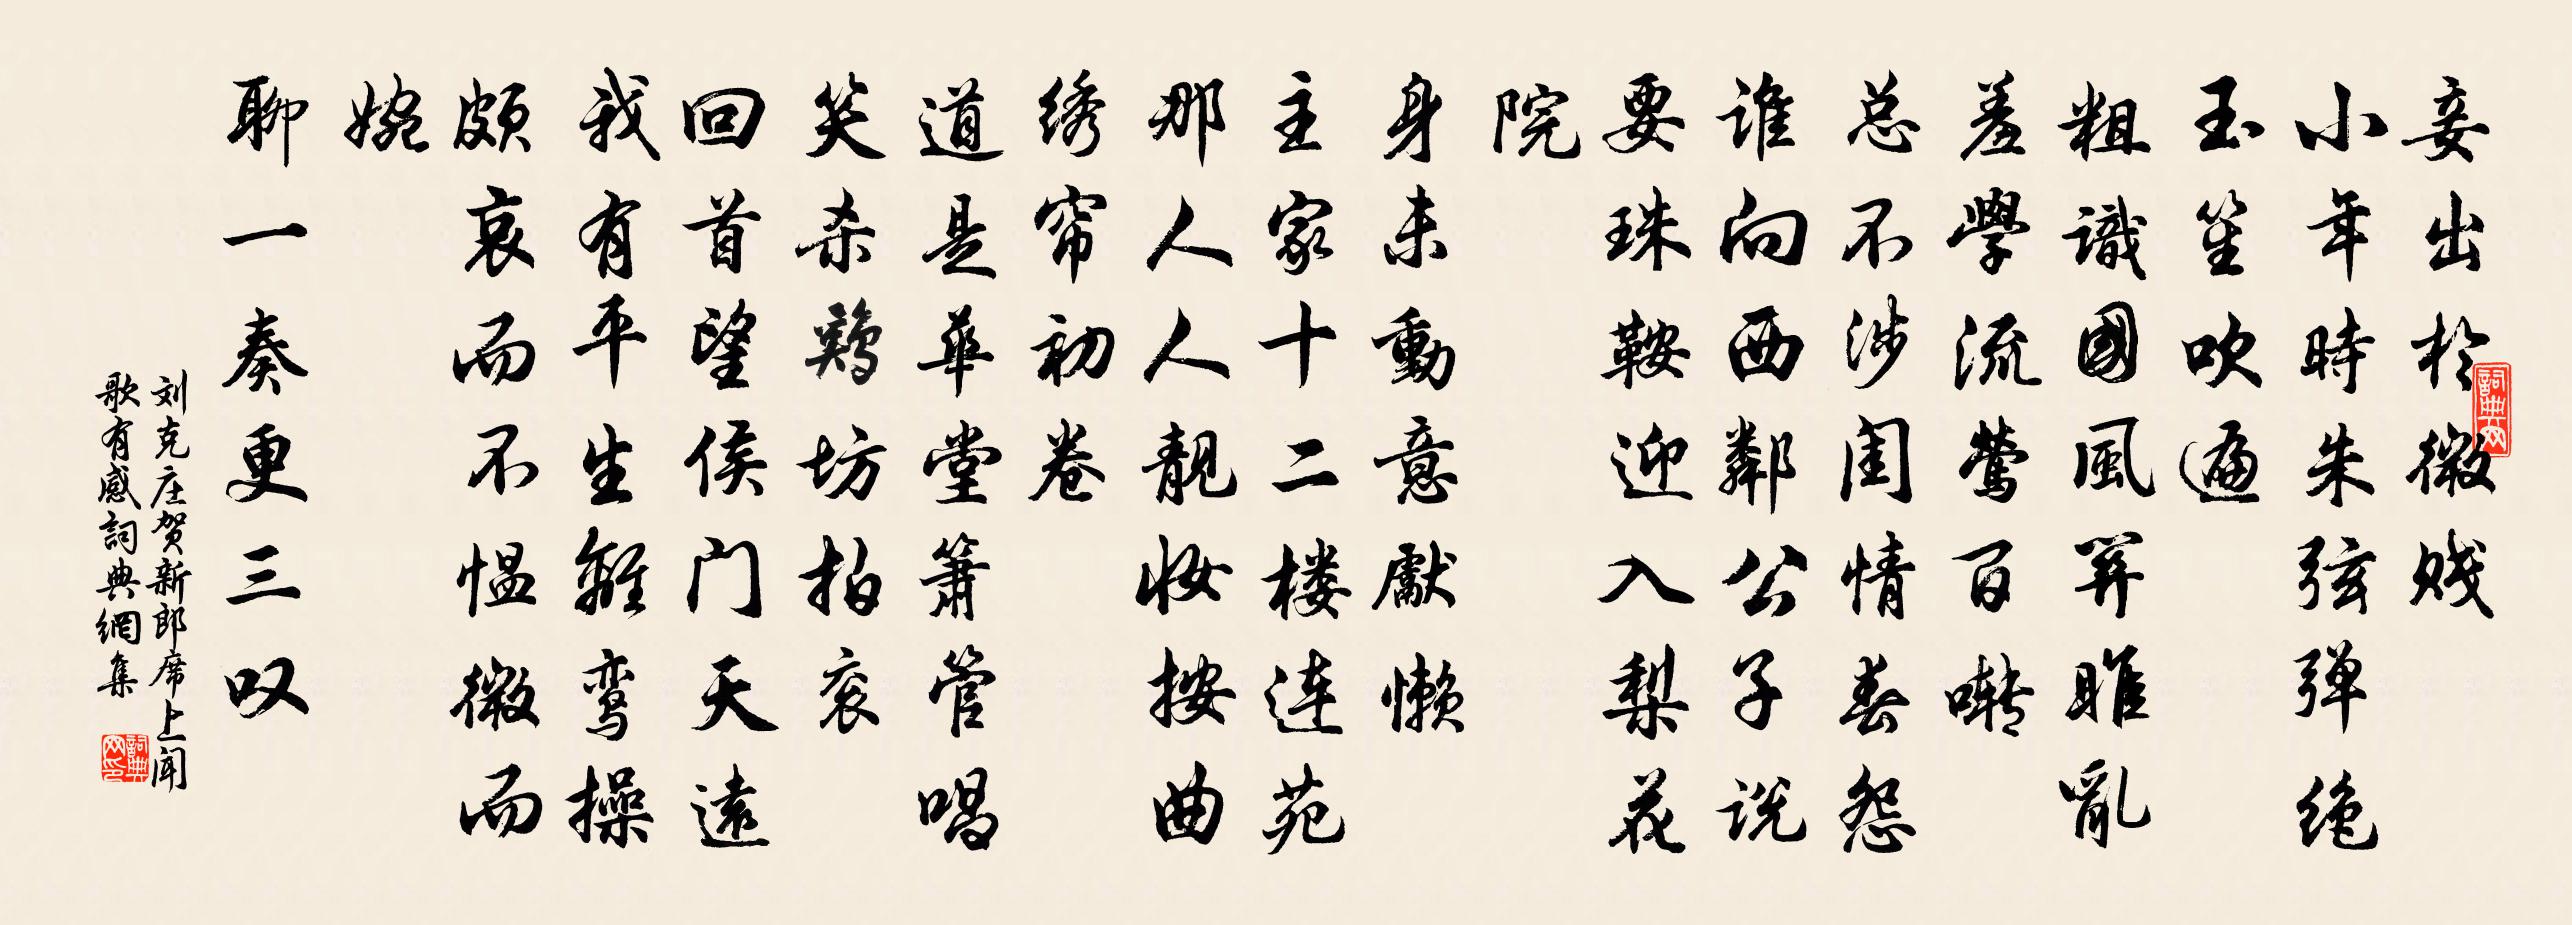 妾出於微贱
小年時朱弦弹绝
玉笙吹遍
粗識國風關雎亂
羞學流莺百啭
总不涉闺情春怨
谁向西鄰公子说
要珠鞍迎入梨花
院
身未動意先懒
主家十二楼连苑
那人人靓妆按曲
绣帘初卷
道是華堂箫管唱
笑杀鸡坊拍衮
回首望侯门天遠
我有平生離鸾操
颇哀而不愠微而
婉
聊一奏更三叹
刘克庄贺新郎席上闻
歌有感詞典網集
詞典网
詞典网印